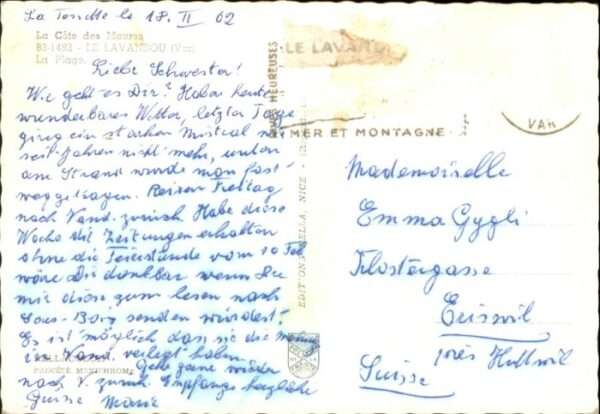 La Tondte le 18. II 62
La Côte des Maures
83-1493 - LE LAVANDOU (Var)
La Plage
Liebe Schwester!
Wie geht es Dir? Haben heute
wunderbares Wetter, letzter Tage
ging ein starken Mistral wie
seit Jahren nicht mehr, unten
am Strand wurde man fast
weggetragen. Reisen Freitag
nach Vand. zurück. Habe diese
Woche die Zeitungen erhalten
ohne die Feierstunde vom 10 Feb
wäre Dir dankbar wenn Du
mir diese zum lesen nach
senden würdest!
Es ist möglich dass sie die
in Vand. verlegt haben.
Gehe gerne wieder
nach V. zurück. Empfange herzliche
Grüsse Marie
HEUREUSES
LE LAVAND
MER ET MONTAGNE
VAR
EDITIONS NICE
Mademoiselle
Emma Gygli
Klostergasse
Eriswil
près Huttwil
Suisse